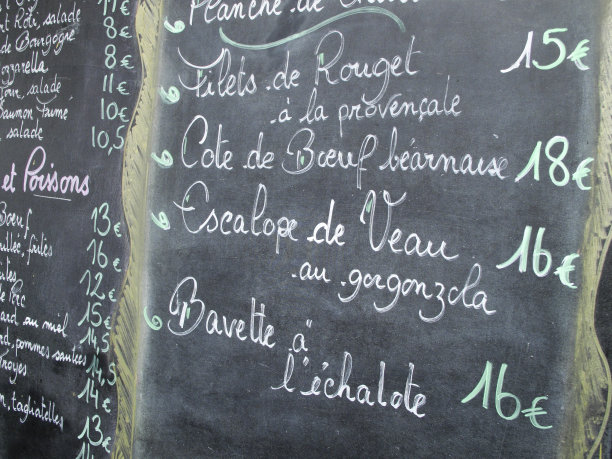 salade 11€
de Bourgogne 8€
ozzarella 8€
salade 11€
fumé 10€
salade 10,5
et Poissons
Boeuf 13€
frites 16€
12€
15€
ard au miel 14,5
pommes sautées 14,5
royes 14€
n, tagliatelles 13€
14
Planche de
Filets de Rouget 15€
à la provençale
Côte de Bœuf béarnaise 18€
Escalope de Veau 16€
au gorgonzola
Bavette à
l'échalote 16€